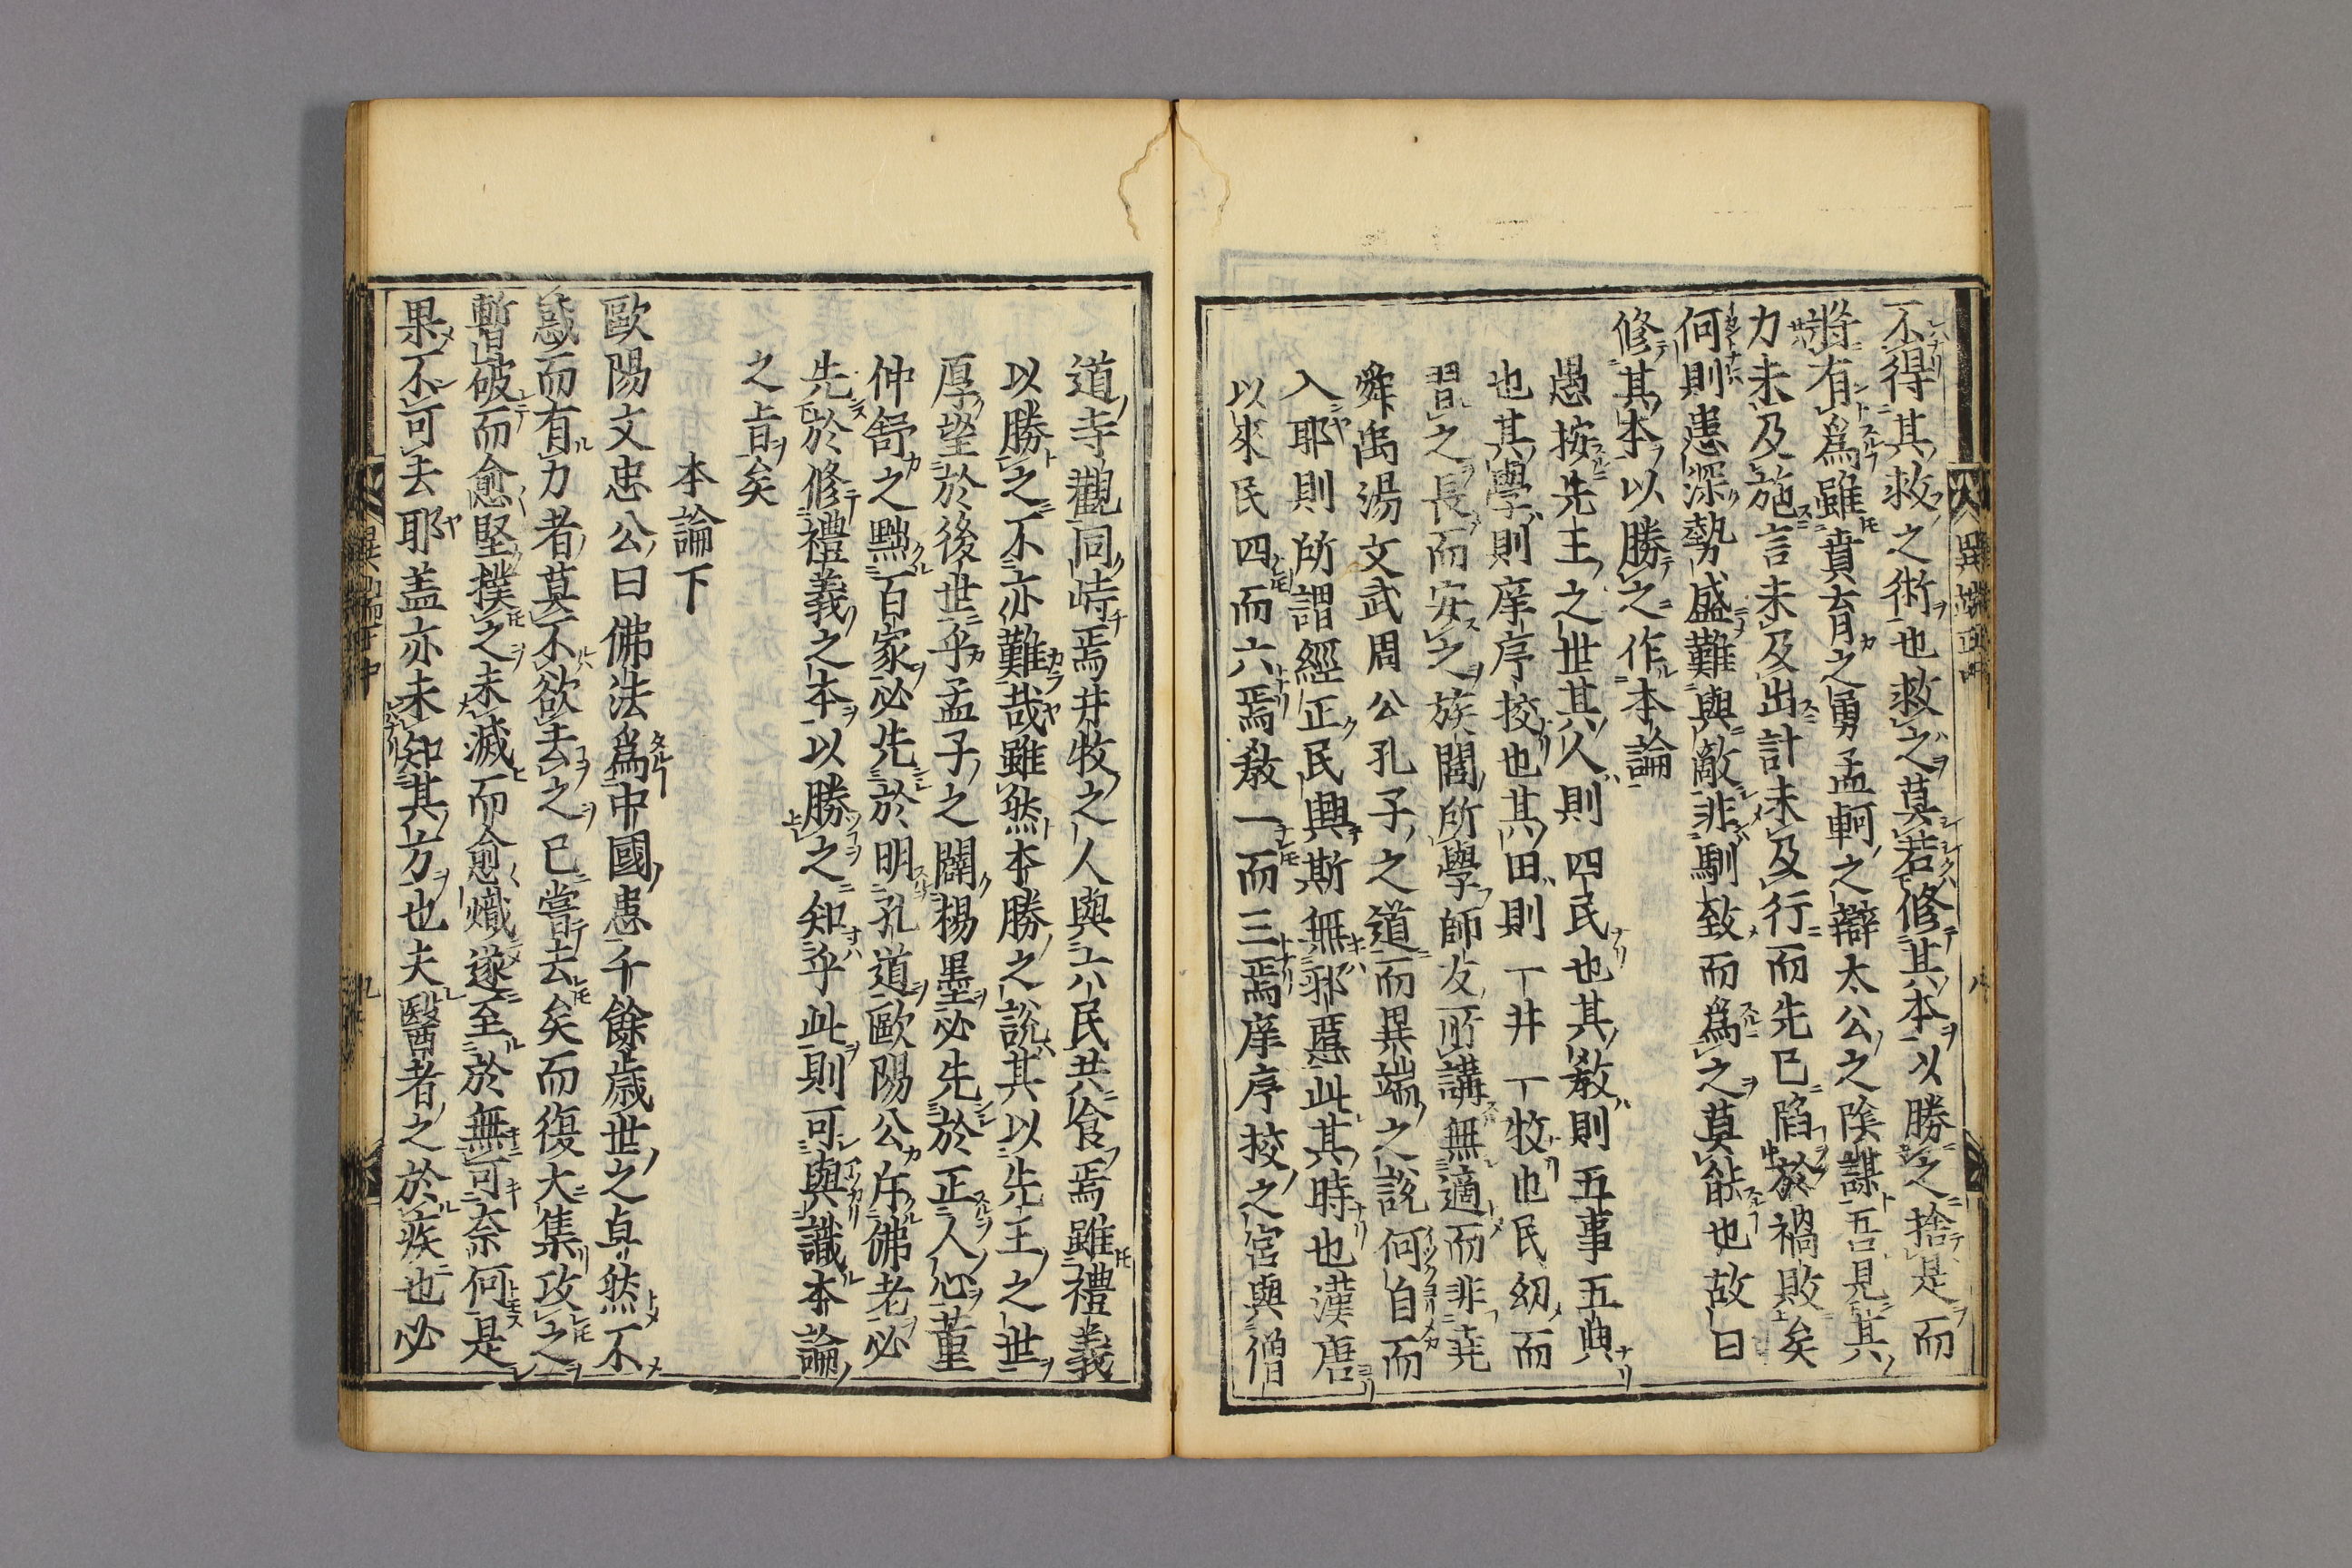 不得其救之術也救之莫若修其本以勝之捨是而
將有爲雖賁育之勇孟軻之辯太公之陰謀吾見其
力未及施言未及出計未及行而先已陷於禍敗矣
何則患深勢盛難與敵非馴致而爲之莫能也故曰
修其本以勝之作本論
愚按先王之世其人則四民也其敎則五事五典
也其學則庠序挍也其田則一井一牧也民幼而
習之長而安之族閭所學師友所講無適而非堯
舜禹湯文武周公孔子之道而異端之說何自而
入耶則所謂經正民興斯無邪慝此其時也漢唐
以來民四而六焉敎一而三焉庠序挍之宮與僧
道寺觀同峙焉井牧之人與六民共食焉雖禮義
以勝之不亦難哉雖然本勝之說其以先王之世
厚望於後世乎孟子之闢楊墨必先於正人心董
仲舒之黜百家必先於明孔道歐陽公斥佛老必
先於修禮義之本以勝之知乎此則可與識本論
之旨矣
本論下
歐陽文忠公曰佛法爲中國患千餘歲世之卓然不
惑而有力者莫不欲去之已嘗去矣而復大集攻之
暫破而愈堅撲之未滅而愈熾遂至於無可奈何是
果不可去耶盖亦未知其方也夫醫者之於疾也必